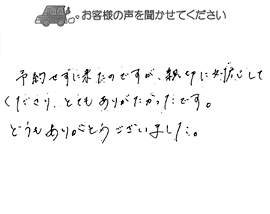 お客様の声を聞かせてください
予約せずに来たのですが、親切に対応して
くださり、とてもありがたかったです。
どうもありがとうございました。